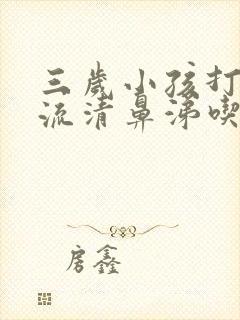 三歲小孩打
流清鼻涕喫
房鑫